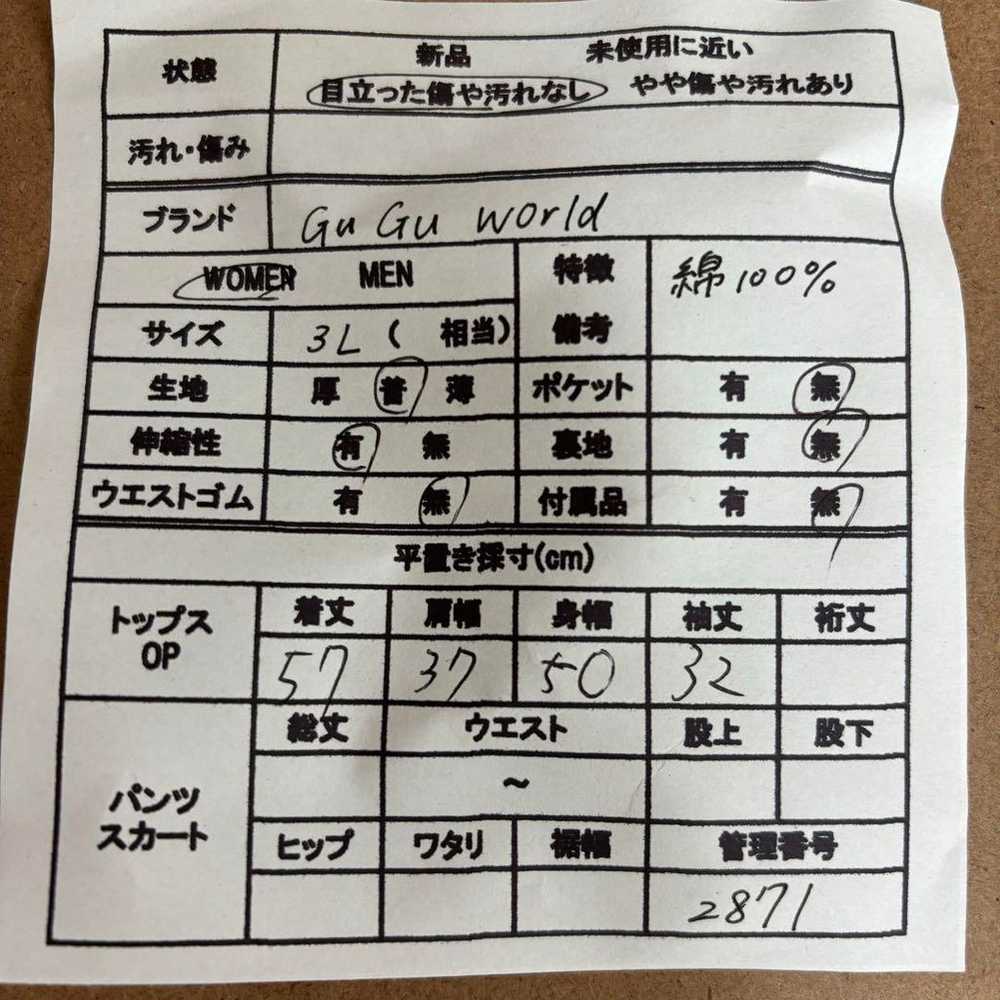 状態 新品 未使用に近い
目立った傷や汚れなし やや傷や汚れあり
汚れ・傷み
ブランド Gu Gu World
WOMEN MEN 特徴 綿100%
サイズ 3L ( 相当) 備考
生地 厚 普 薄 ポケット 有 無
伸縮性 有 無 裏地 有 無
ウエストゴム 有 無 付属品 有 無
平置き採寸(cm)
トップス 着丈 肩幅 身幅 袖丈 裄丈
OP 57 37 50 32
総丈 ウエスト 股上 股下
パンツ ～
スカート ヒップ ワタリ 裾幅 管理番号
2871